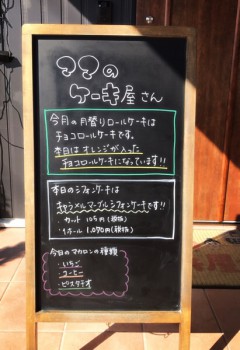 ママの
ケーキ屋さん
今月の月替りロールケーキは
チョコロールケーキです。
本日はオレンジが入った
チョコロールケーキになっています!!
本日のシフォンケーキは
キャラメルマーブルシフォンケーキです!!
・カット 105円(税抜)
・1ホール 1,090円(税抜)
今日のマカロンの種類
・いちご
・コーヒー
・ピスタチオ